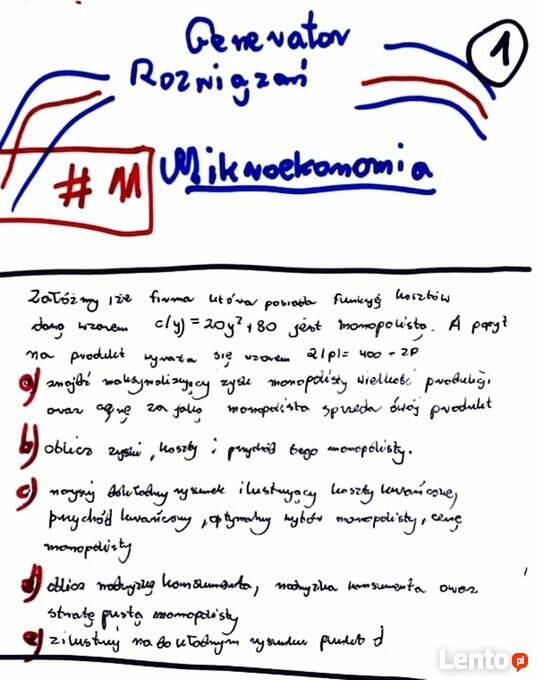 Generator
Rozwiązań
1
# 11
Mikroekonomia
Załóżmy iże firma która posiada funkcję kosztów
daną wzorem c(y) = 20y² + 80 jest monopolistą. A popyt
na produkt wyraża się wzorem Q(p) = 400 - 2p
a) znajdź maksymalizujący zysk monopolisty wielkość produkcji,
oraz cenę za jaką monopolista sprzeda swój produkt
b) oblicz zyski, koszty i przychód tego monopolisty.
c) narysuj dokładny rysunek ilustrujący koszty krańcowe,
przychód krańcowy, optymalny wybór monopolisty, cenę
monopolisty
d) oblicz nadwyżkę konsumenta, nadwyżka konsumenta oraz
stratę pustą monopolisty
e) zilustruj na dokładnym rysunku punkt d
Lento.pl